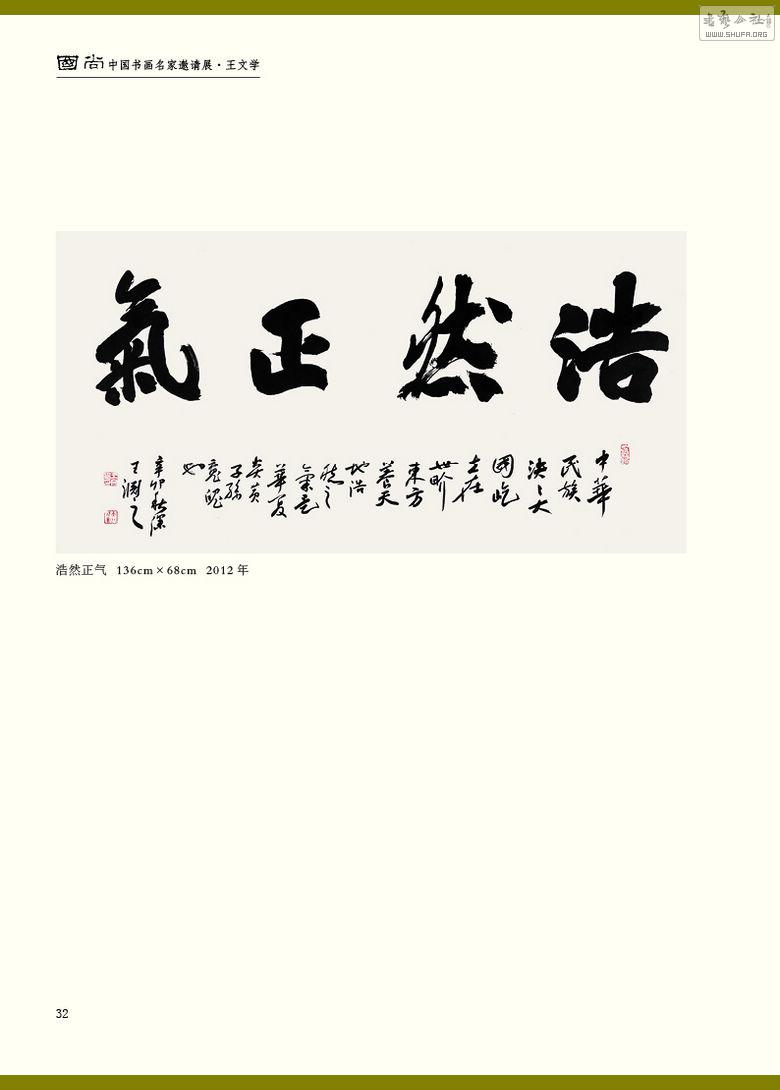 書藝公社
WWW.SHUFA.ORG
國尚 中国书画名家邀请展·王文学
浩然正氣
中華
民族
泱〻大
國屹
立在
世界
東方
天
地浩
然之
氣是
華夏
炎黄
子孫
魄
也
辛卯秋深
王
浩然正气 136cm×68cm 2012 年
32